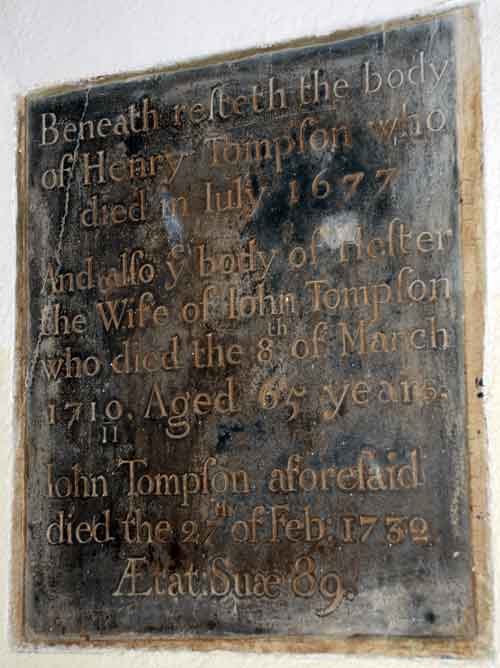 Beneath reſteth the body
of Henry Tompſon who
died in Iuly 1677
And alſo yͤ body of Heſter
the Wife of Iohn Tompſon
who died the 8th of March
1710/11. Aged 65 years.
Iohn Tompſon aforeſaid
died the 27th of Feb: 1732
Ætat: Suæ 89.